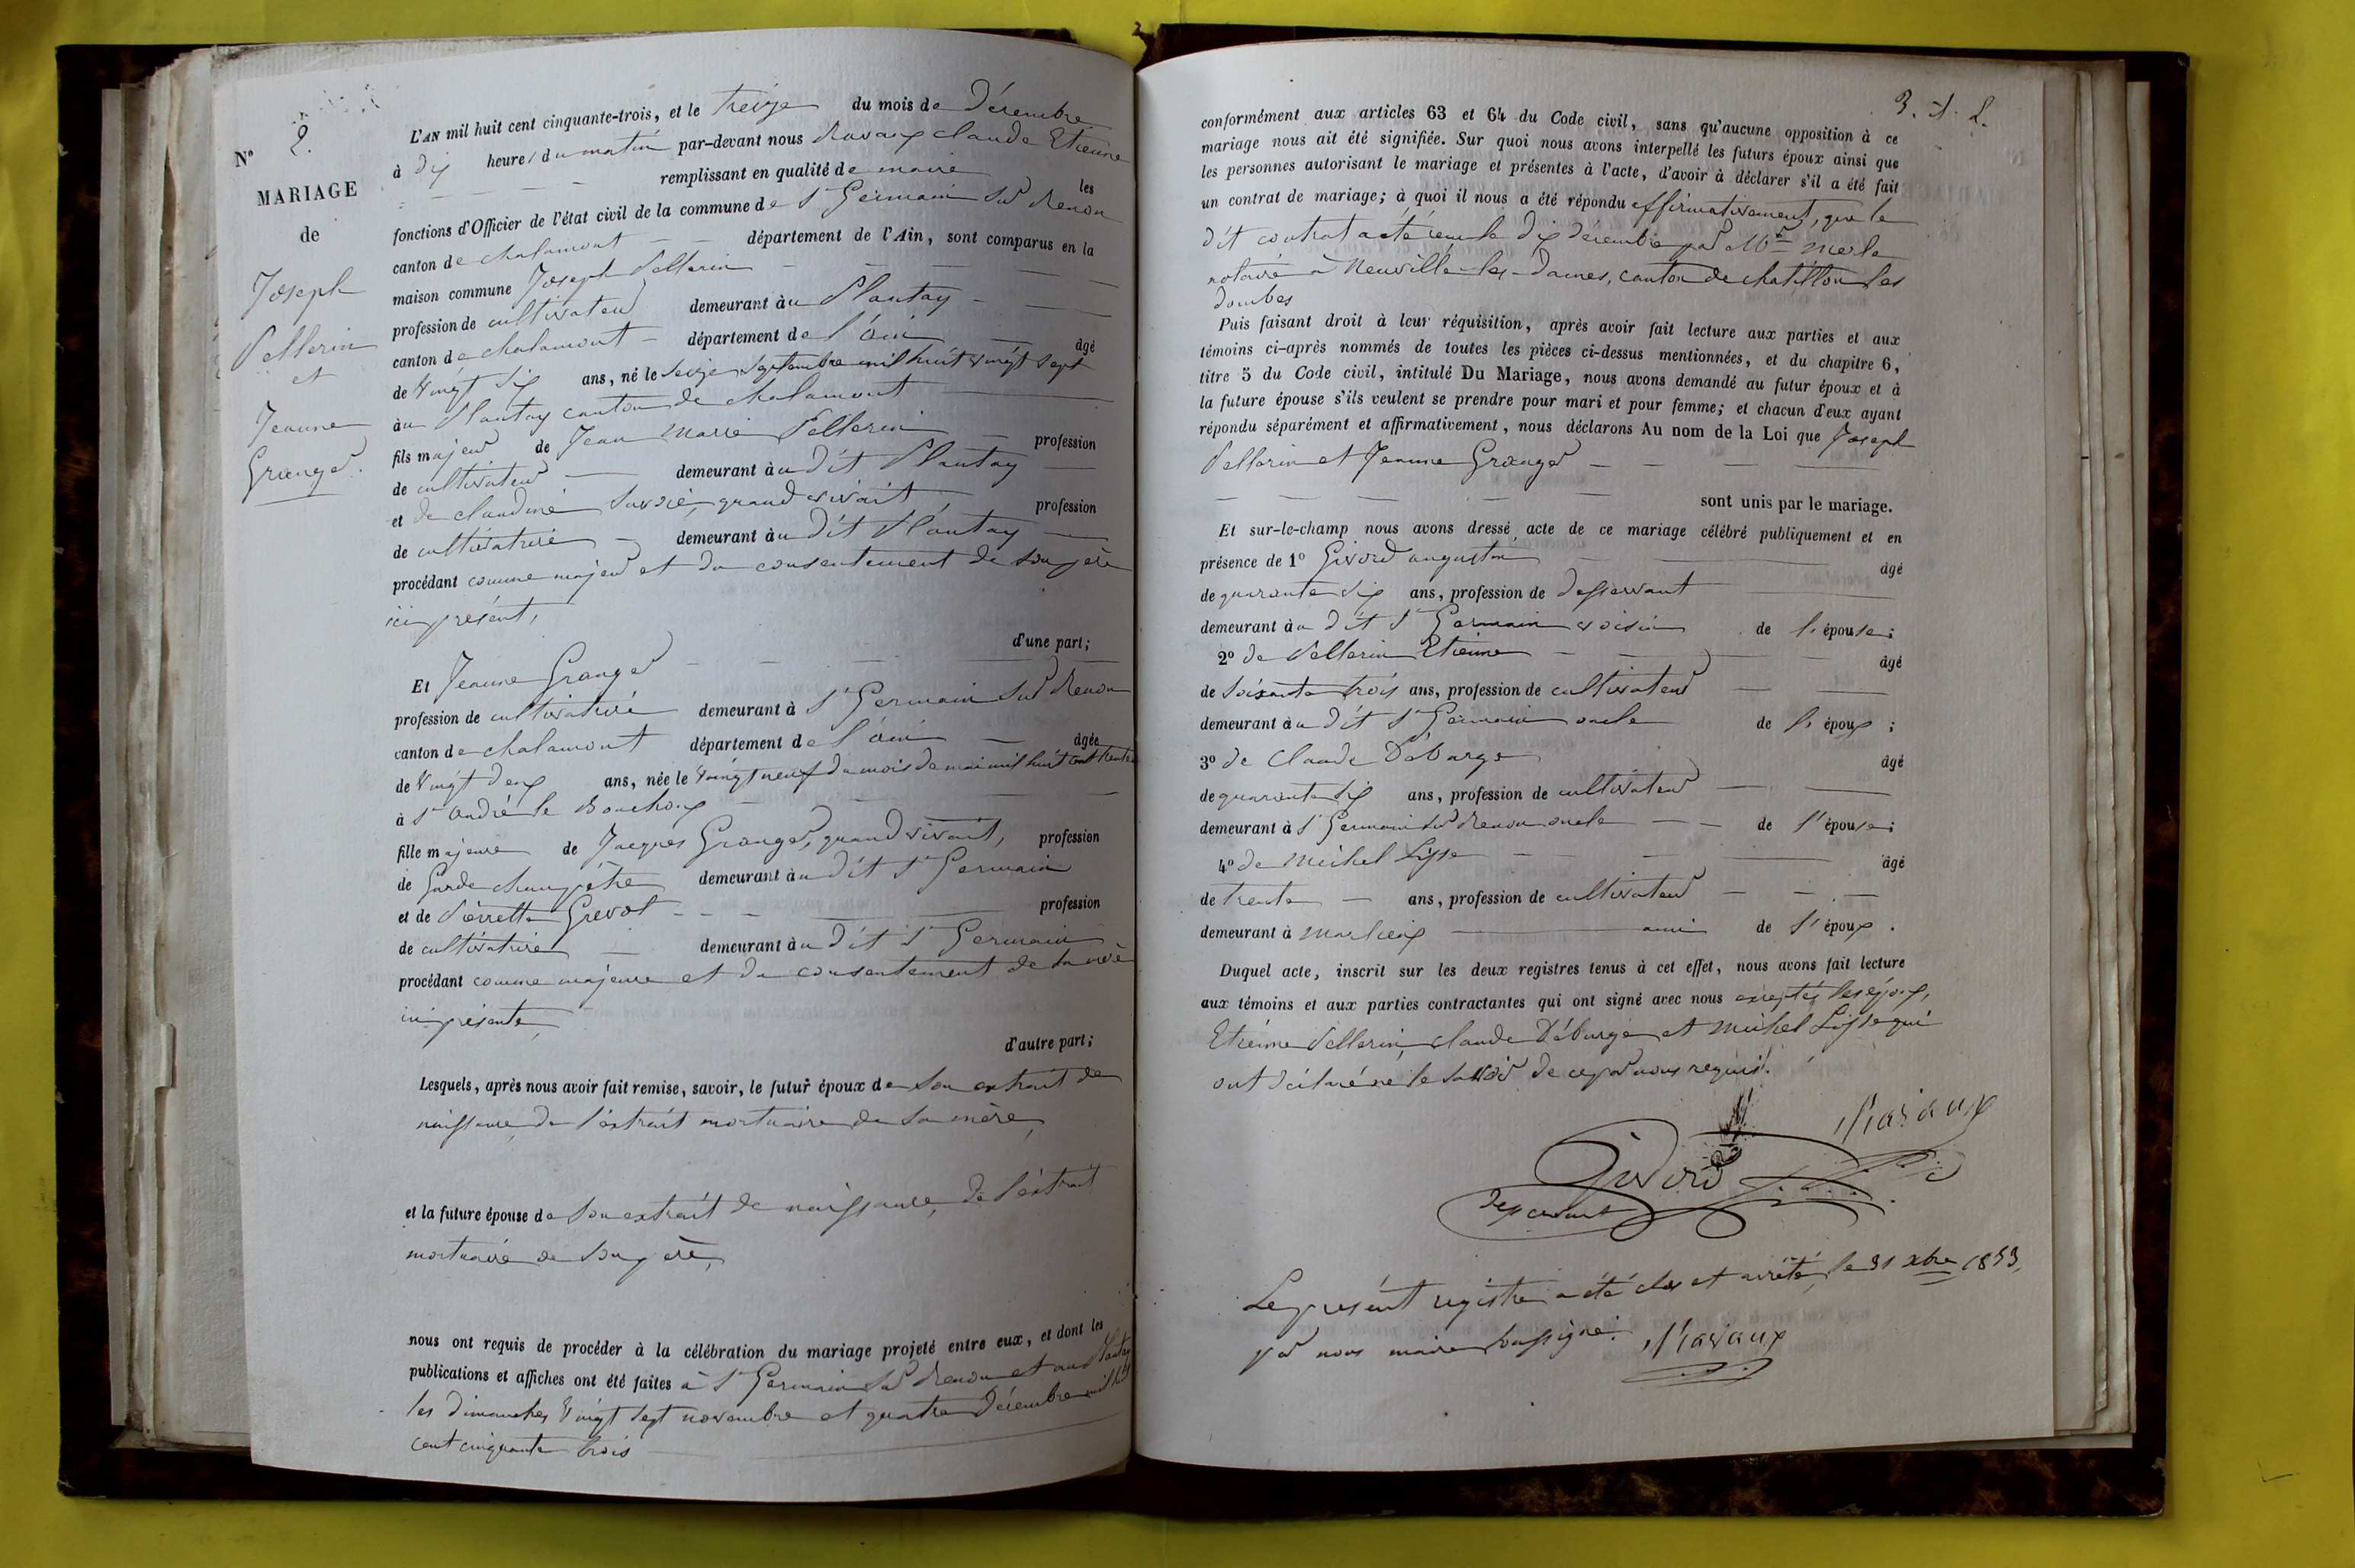 N° 2.
MARIAGE
de
Joseph
Pellerin
et
Jeanne
Granger.
L'AN mil huit cent cinquante-trois, et le treize du mois de Décembre
à dix heures du matin par-devant nous Ravaux claude Etienne
remplissant en qualité de maire les
fonctions d'Officier de l'état civil de la commune de St Germain sur Renon
canton de chalamont département de l'Ain, sont comparus en la
maison commune Joseph Pellerin
profession de cultivateur demeurant au Plantay
canton de chalamont département de l'ain âgé
de Vingt six ans, né le seize Septembre mil huit vingt sept
au Plantay canton de chalamont
fils majeur de Jean Marie Pellerin profession
de cultivateur demeurant au dit Plantay
et de claudine quand vivait profession
de cultivatrice demeurant au dit Plantay
procédant comme majeur et du consentement de son père
ici présent,
d'une part;
Et Jeanne Granger
profession de cultivatrice demeurant à St Germain sur Renon
canton de chalamont département de l'ain âgée
de Vingt deux ans, née le vingt neuf du mois de mai mil huit cent trente
à St andré le Bouchoux
fille majeure de Jacques Granger, quand vivait, profession
de Garde champêtre demeurant au dit St Germain
et de Pierrette Grevat profession
de cultivatrice demeurant au dit St Germain
procédant comme majeure et du consentement de sa mère
ici présente,
d'autre part;
Lesquels, après nous avoir fait remise, savoir, le futur époux de son extrait de
naissance, de l'extrait mortuaire de sa mère,
et la future épouse de son extrait de naissance, de l'extrait
mortuaire de son père,
nous ont requis de procéder à la célébration du mariage projeté entre eux, et dont les
publications et affiches ont été faites à St Germain sur Renon et au Plantay
les dimanches Vingt sept novembre et quatre Décembre mil huit
cent cinquante trois
conformément aux articles 63 et 64 du Code civil, sans qu'aucune opposition à ce
mariage nous ait été signifiée. Sur quoi nous avons interpellé les futurs époux ainsi que
les personnes autorisant le mariage et présentes à l'acte, d'avoir à déclarer s'il a été fait
un contrat de mariage; à quoi il nous a été répondu affirmativement, que le
dit contrat a été reçu le dix décembre par Me Merle
notaire à Neuville-les-Dames, canton de chatillon les
dombes
Puis faisant droit à leur réquisition, après avoir fait lecture aux parties et aux
témoins ci-après nommés de toutes les pièces ci-dessus mentionnées, et du chapitre 6,
titre 5 du Code civil, intitulé Du Mariage, nous avons demandé au futur époux et à
la future épouse s'ils veulent se prendre pour mari et pour femme; et chacun d'eux ayant
répondu séparément et affirmativement, nous déclarons Au nom de la Loi que Joseph
Pellerin et Jeanne Granger
sont unis par le mariage.
Et sur-le-champ nous avons dressé acte de ce mariage célébré publiquement et en
présence de 1° Givord augustin âgé
de quarante six ans, profession de desservant
demeurant au dit St Germain voisin de l'épouse;
2° de Pellerin Etienne âgé
de soixante trois ans, profession de cultivateur
demeurant au dit St Germain oncle de l'époux;
3° de Claude Débarge âgé
de quarante six ans, profession de cultivateur
demeurant à St Germain sur Renon oncle de l'épouse;
4° de Michel Lisse âgé
de trente ans, profession de cultivateur
demeurant à Marlieux ami de l'époux.
Duquel acte, inscrit sur les deux registres tenus à cet effet, nous avons fait lecture
aux témoins et aux parties contractantes qui ont signé avec nous exceptés les époux,
Etienne Pellerin, claude Débarge et Michel Lisse qui
ont déclaré ne le savoir de ce par nous requis.
Ravaux
Givord
desservant
Le présent registre a été clos et arrêté, le 31 xbre 1853,
par nous maire soussigné. Ravaux